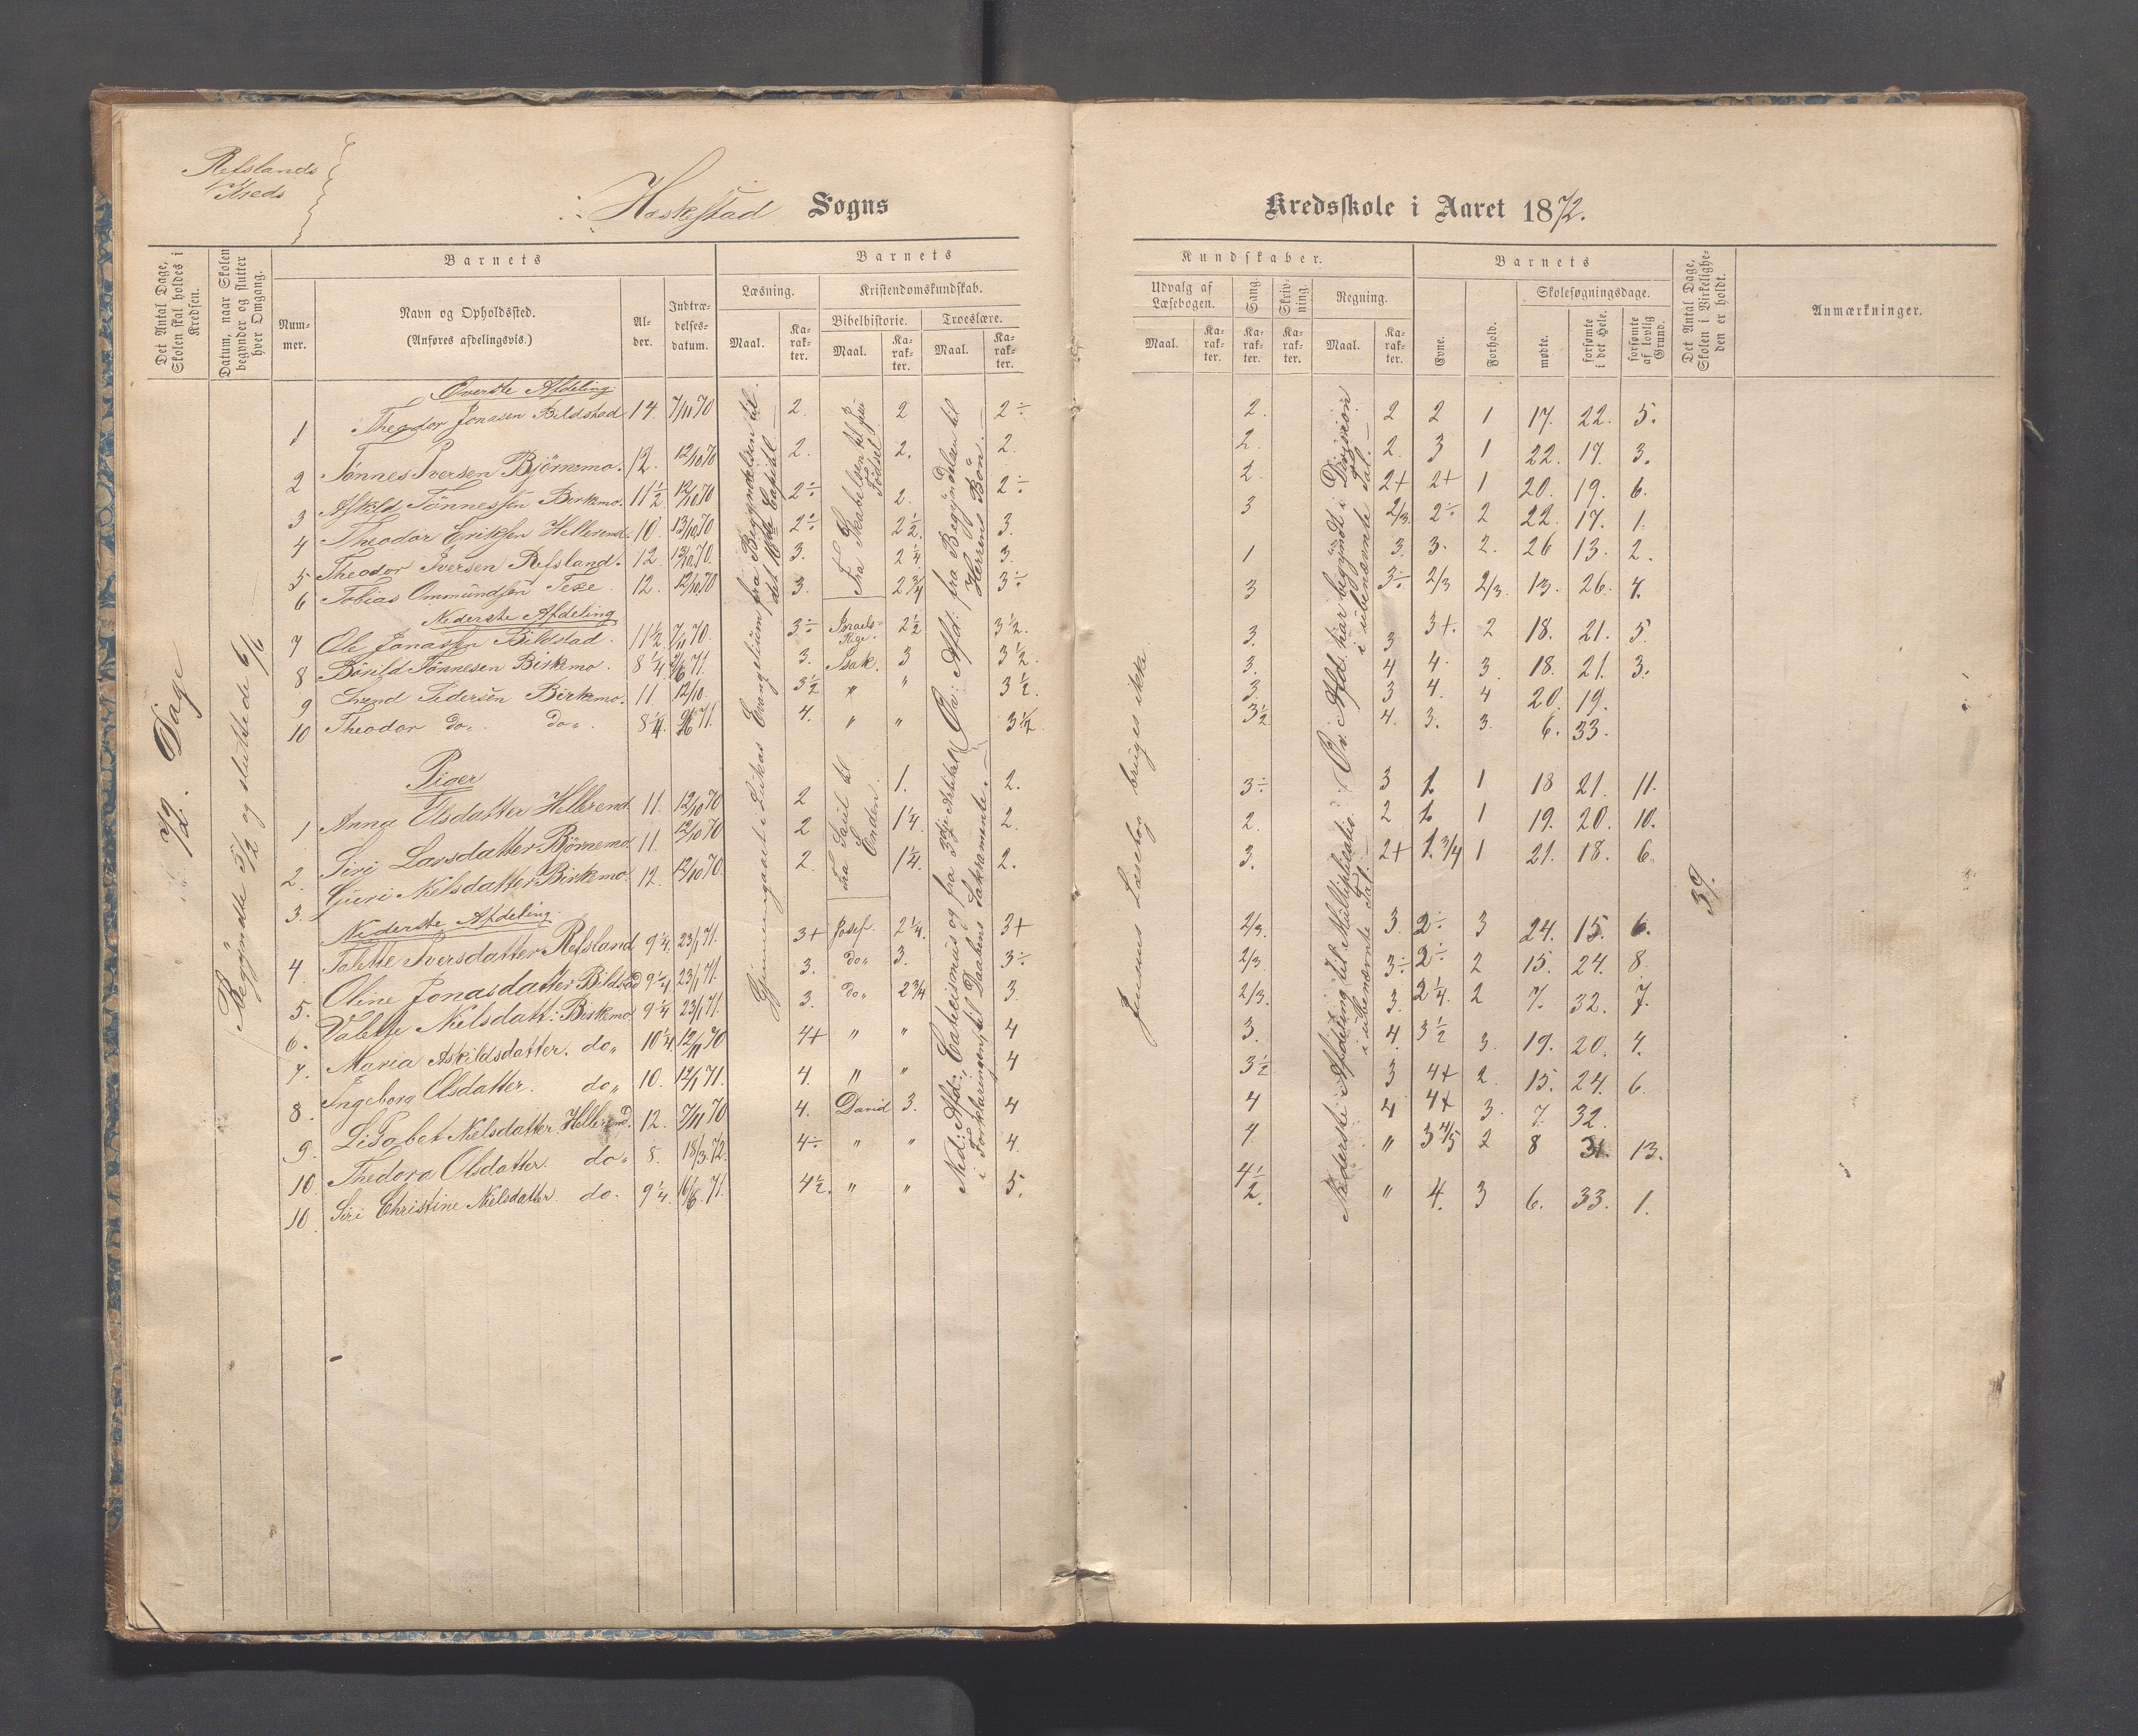 Refslands
Kreds
Heskestad Sogns
Kredsskole i Aaret 1872.
Det Antal Dage, Skolen skal holdes i Kredsen.
Datum, naar Skolen begynder og slutter hver Omgang.
Barnets
Nummer.
Navn og Opholdssted.
(Anføres afdelingsvis.)
Alder.
Indtrædelsesdatum.
Barnets
Læsning.
Maal.
Karakter.
Kristendomskundskab.
Bibelhistorie.
Maal.
Karakter.
Troeslære.
Maal.
Karakter.
Kundskaber.
Udvalg af Læsebogen.
Maal.
Karakter.
Sang.
Karakter.
Skrivning.
Karakter.
Regning.
Maal.
Karakter.
Barnets
Evne.
Forhold.
Skolesøgningsdage.
mødte.
forsømte i det Hele.
forsømte af lovlig Grund.
Det Antal Dage, Skolen i Virkeligheden er holdt.
Anmærkninger.
72. Dage
Begyndte 5/2 og sluttede 6/6
Gjennemgaaet i Lukas Evangelium fra Begyndelsen til det 10de Capitel.
Fra Skabelsen til Jesu Fødsel
Fra Saul til Enden
Øv: Afd: fra Begyndelsen til Herrens Bøn.
Ned: Afd: Catecismus og fra 3die Artikel i Forklaringen til Daabens Sakramente.
Jensens Læsebog bruges ikke
Øv: Afd. har begyndt i Division i ubenævnte Tal.
Nederste Afdeling til Multiplicatio i ubenævnte Tal.
39.
Øverste Afdeling
1 Theodor Jonasen Bildstad 14. 7/11 70 2. 2 2÷ 2. 2 2 1 17. 22. 5.
2 Tønnes Iversen Bjørnemo. 12. 12/10 70 2. 2. 2. 2. 2. 3 1 22. 17. 3.
3 Askild Tønnessen Birkemo. 11½ 12/10 70 2÷ 2. 2÷ 2. 2+ 2+ 1 20. 19. 6.
4 Theodor Eriksen Hellerend. 10. 13/10 70 2÷ 2½ 3. 3 2/3. 2÷ 2 22. 17. 1.
5 Theodor Iversen Refsland. 12. 12/10 70. 3. 2¼ 3. 1 3. 3. 2. 26 13. 2.
6 Tobias Ommundsen 12. 12/10 70 3. 2¾ 3÷ 3 3÷ 2/3 2/3. 13. 26. 4.
Nederste Afdeling
7 Ole Jonasen Bildstad. 11½ 7/11 70. 3÷ Israels Rige. 2½ 3½. 3. 3 3+. 2 18. 21. 5.
8 Børild Tønnesen Birkemo. 8¼ 71. 3. Isak. 3 3½. 3. 4 4. 3. 18. 21. 3.
9 Svend Pedersen Birkemo. 11. 12/10. 3½ " " 3½. 3. 3 4. 4 20. 19.
10 Theodor do. do. 8¼. 71. 4. " " 3½. 3½ 4. 3. 3. 6. 33.
Piger
1 Anna Olsdatter Hellerend 11. 12/10 70 2 1. 2. 3÷ 3 1 1 18 21. 11.
2. Siri Larsdatter Børnemo 11. 12/10 70 2 1¼. 2. 2. 2 1 19. 20. 10.
3. Guri Nielsdatter Birkemo. 12. 12/10 70. 2. 1¼. 2. 3. 2+ 1.¾ 1 21. 18. 6.
Nederste Afdeling.
4. Talette Iversdatter Refsland 9¼. 23/1 71. 3+ Josef. 2¼. 3+ 2/3. 3. 2÷ 3 24. 15. 6.
5. Oline Jonasdatter Bildstad 9¼. 23/1 71. 3. do. 3. 3÷ 2/3 3÷ 2÷ 2 15. 24. 8.
6. Valette Nielsdatt: Birkemo 9¼ 23/1 71. 3. do. 2¾ 3. 2/3. 3. 2¼. 2 7. 32. 7.
7. Maria Askildsdatter. do. 10¼. 12/11 70 4+ " " 4 3. 4. 3½ 3. 19. 20. 4.
8. Ingeborg Olsdatter. do. 10. 12/1 71. 4. " " 4 3½ 3 4+ 2. 15. 24. 6.
9. Lisabet Nielsdatter. Hellerend. 12. 7/11 70 4. David 3. 4 4 4 4+ 3. 7. 32.
10. Thedora Olsdatter. do. 8. 18/3 72. 4÷ " " 4. 4. " 3 4/5 2 8 31. 13.
10. Siri Christine Nielsdatter. do. 9¼. 71. 4½. " " 5. 4½. " 4. 3 6. 33. 1.